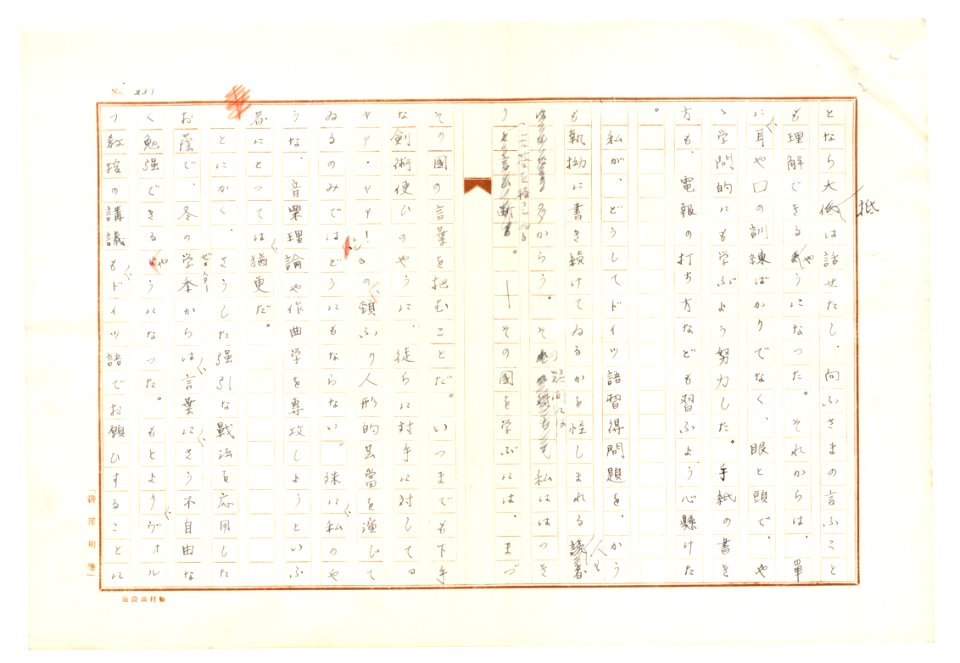 No. 231
となら大低は話せたし、向ふさまの言ふこと
抵
も理解できるやうになつた。それからは、單
に耳や口の訓練ばかりでなく、眼と頭で、や
ゝ学問的にも学ぶよう努力した。手紙の書き
方も、電報の打ち方なども習ふよう心懸けた
。
私が、どうしてドイツ語習得問題を、かう
も執拗に書き続けてゐるかを怪しまれる読者
人も
多からう。その疑問には私ははつき
り
断言する。——その國を学ぶには、まづ
その國の言葉を把むことだ。いつまでも下手
な劍術使ひのやうに、徒らに対手に対して。
ヤヤ・ヤヤ!の頷ふり人形的芸當を演じて
ゐるのみではどうにもならない。殊に私のや
うな、音樂理論や作曲学を専攻しようといふ
者にとつては猶更だ。
とにかく、さうした强引な戰法を応用した
お蔭で、冬の学季からは言葉にさう不自由な
ゼメスター
く勉強できるやうになつた。もとよりヴォル
フ敎授の講議もドイツ語でお願ひすることに